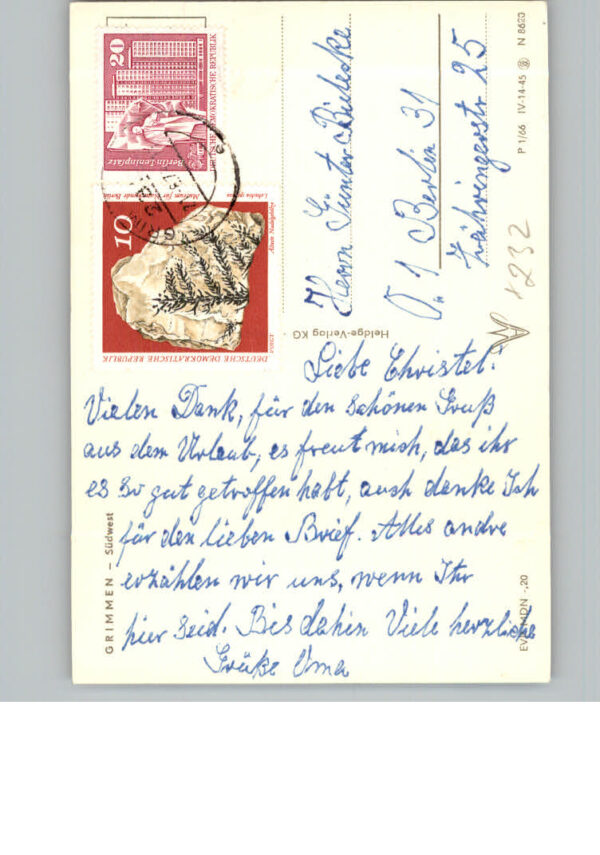 Liebe Christel!
Vielen Dank, für den schönen Gruß
aus dem Urlaub, es freut mich, das ihr
es so gut getroffen habt, auch danke Ich
für den lieben Brief. Alles andre
erzählen wir uns, wenn Ihr
hier seid. Bis dahin Viele herzliche
Grüße Oma
Herrn Günter
1 Berlin 31
Zähringerstr 25
1232
GRIMMEN – Südwest
Heldge-Verlag KG
P 1/66 IV-14-45 N 8620
EVP MDN -,20
20
DEUTSCHE DEMOKRATISCHE REPUBLIK
Berlin-Leninplatz
10
Museum für Naturkunde Berlin
DEUTSCHE DEMOKRATISCHE REPUBLIK
GRIMM